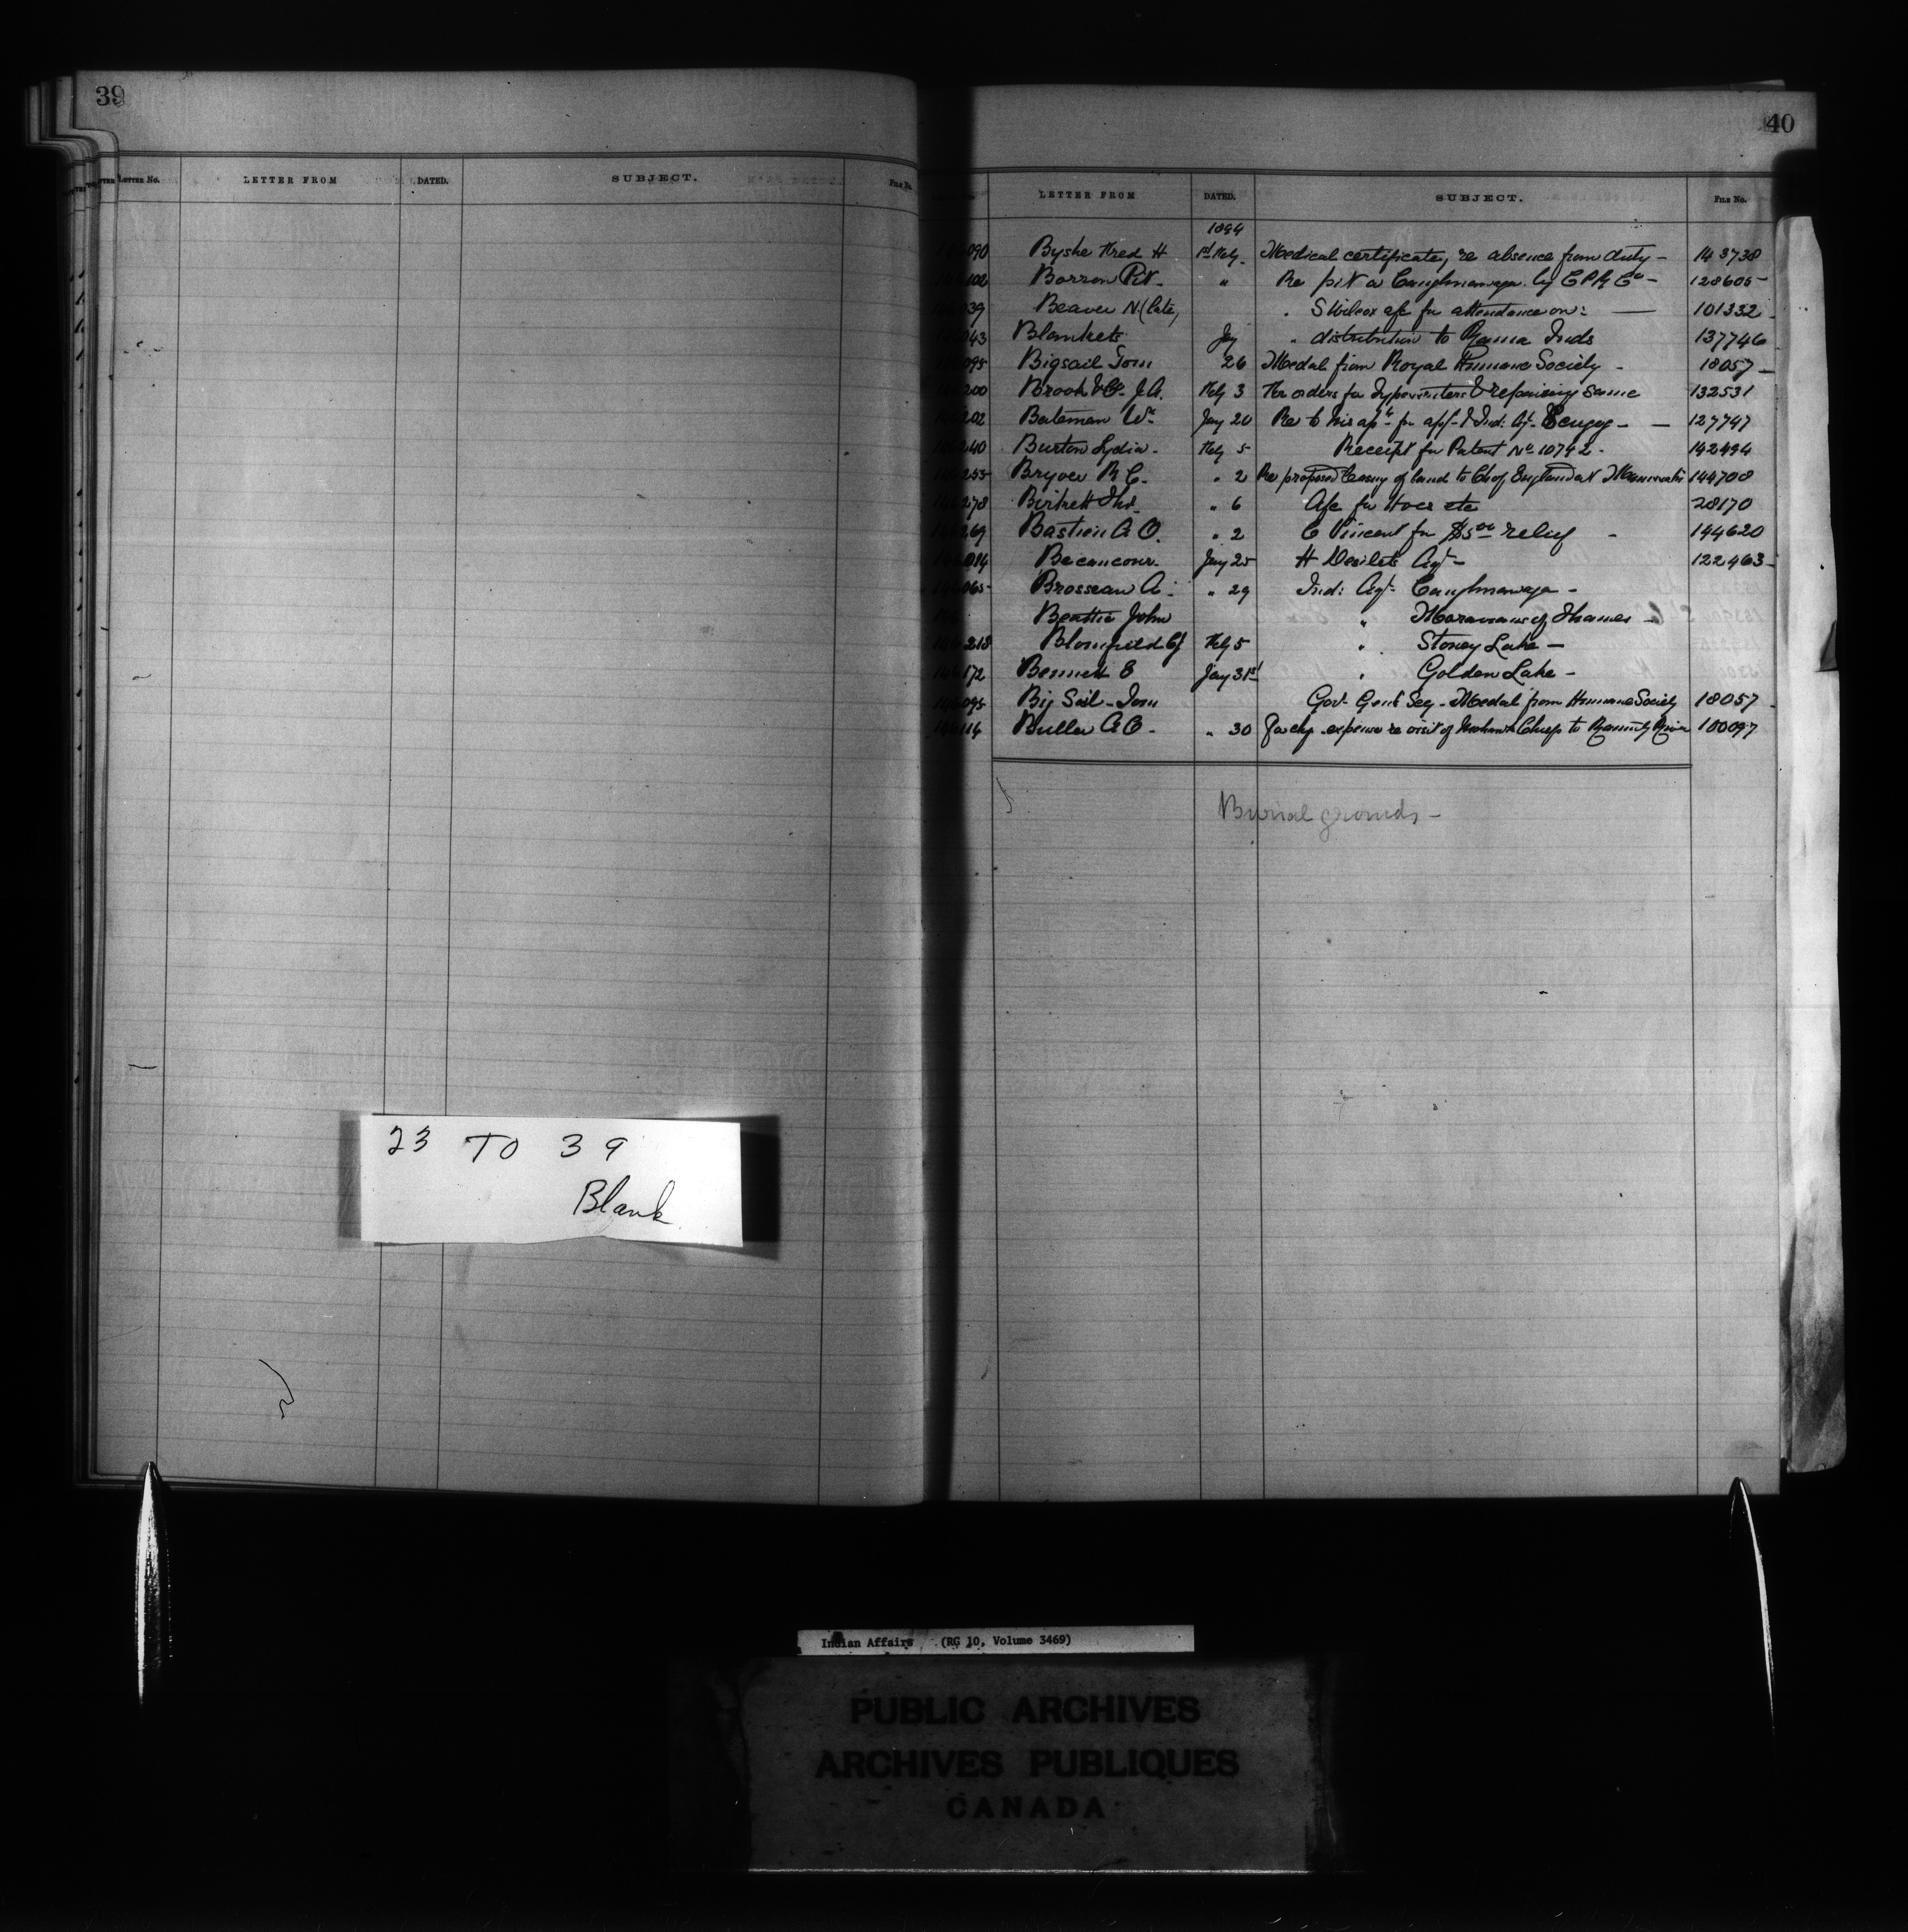 39
LETTER No. LETTER FROM DATED. SUBJECT. FILE No.
23 TO 39
Blank
40
LETTER FROM DATED. SUBJECT. FILE No.
1894
090 Byshe Fred H 1st Feby. Medical certificate, re absence from duty - 143738
102 Borrow Pit - " Re pit at Caughnawaga by CPR Co - 128605
039 Beaver N. (late) S Wilcox a/c for attendance on: 101332
043 Blankets Jay " distribution to Rama Inds 137746
095 Bigsail Tom 26 Medal from Royal Humane Society - 18057
200 Brook J.A. Feby 3 For orders for Typewriters & repairing same 132531
202 Bateman Wm Jany 20 Re to his for Ind: Agt - 127747
240 Burton Lydia - Feby 5 Receipt for Patent No 10792 - 142494
255 Bryce R C. " 2 Re proposed leasing of land to Ch of England at 144708
278 Birkett Thos. " 6 A/c for Hoes etc 28170
269 Bastien A O. " 2 C Vincent for $5.00 relief - 144620
014 Becancour. Jany 25 H Desilets Agt - 122463
065 Brosseau A. " 29 Ind: Agt. Caughnawaga -
Beattie John " Moravians of Thames -
218 Blomfield CJ Feby 5 " Stoney Lake -
172 Bennett E Jany 31st " Golden Lake -
095 Big Sail - Tom Govr Genl Secy - Medal from Humane Society 18057
114 Butler A O - " 30 expenses re visit of Chiefs to River 100097
Burial grounds -
Indian Affairs (RG 10, Volume 3469)
PUBLIC ARCHIVES
ARCHIVES PUBLIQUES
CANADA